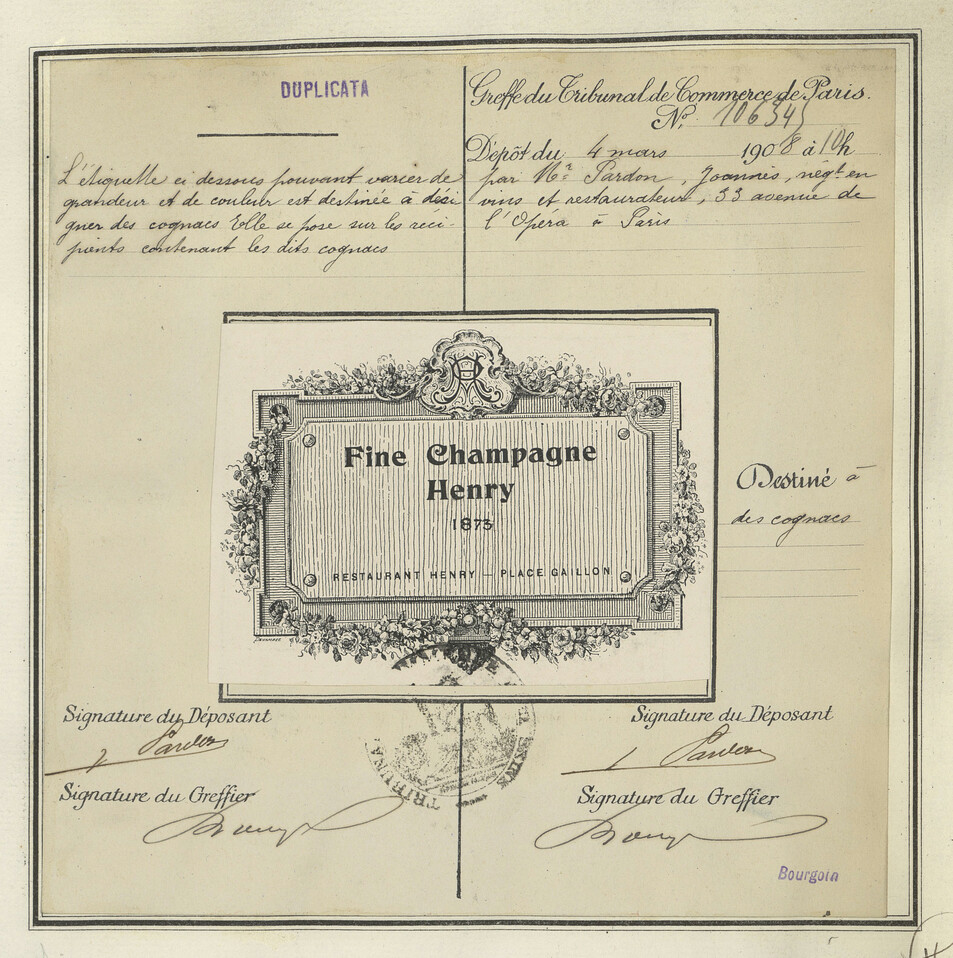 DUPLICATA
L'étiquette ci dessous pouvant varier de
grandeur et de couleur est destinée à dési
gner des cognacs Elle se pose sur les réci-
pients contenant les dits cognacs
Greffe du Tribunal de Commerce de Paris.
No. 106345
Dépôt du 4 mars 1908 à 10h
par Mr Pardon, Joannès, négt en
vins et restaurateur, 33 avenue de
l'Opéra à Paris
Fine Champagne
Henry
1873
RESTAURANT HENRY — PLACE GAILLON
Destiné à
des cognacs
Signature du Déposant
Pardon
Signature du Greffier
Signature du Déposant
Pardon
Signature du Greffier
TRIBUNAL
Bourgoin